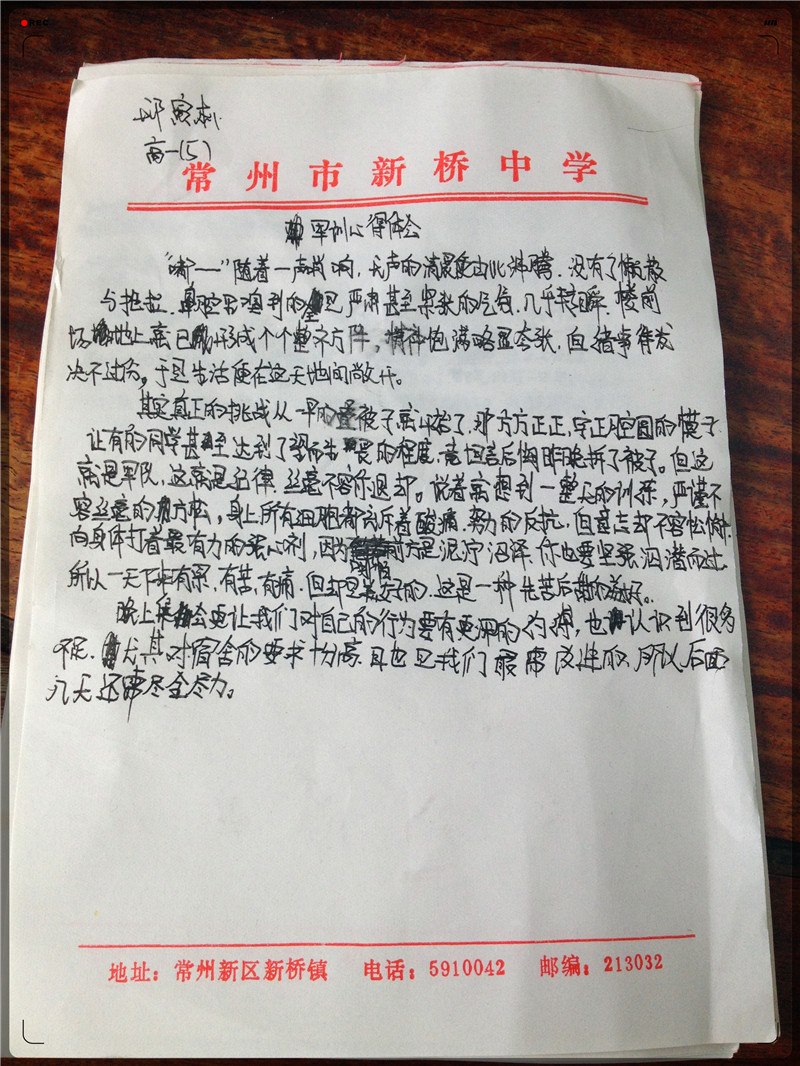 高一(5)
常州市新桥中学
军训心得体会
"嘟——"随着一声哨响，无声的清晨便由此沸腾．没有了懒散
与拖拉．严肃甚至紧张的气氛．几乎转瞬．楼前
场地上已形成个个整齐方阵，精神饱满略显夸张．但诸事待发
决不过份，于是生活便在这天地间敞开。
其实真正的挑战从早的叠被子就开始了，那方方正正，的模子
让有的同学甚至达到了望而生畏的程度，竟担言后悔昨晚拆了被子。但这
就是军队，这就是纪律．丝毫不容你退却。说着就想到一整天的训练，严谨不
容丝毫的放松，身上所有细胞都诉着酸痛．努力的反抗．但意志却不容松懈．
向身体打着最有力的强心剂，因为前方是泥泞沼泽．你也要坚强泅潜而过．
所以一天下来有累，有苦，有痛．但却是美好的．这是一种先苦后甜的美好。
晚上集会更让我们对自己的行为要有更深的，也认识到很多
不足．尤其对宿舍的要求十分高．且也是我们最需改进的．所以后面
几天还需尽全尽力。
地址：常州新区新桥镇 电话：5910042 邮编：213032